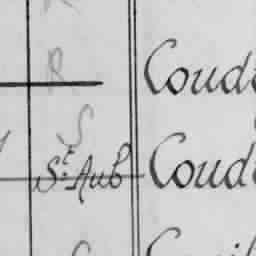 R Coud
S
St. Aub Coud